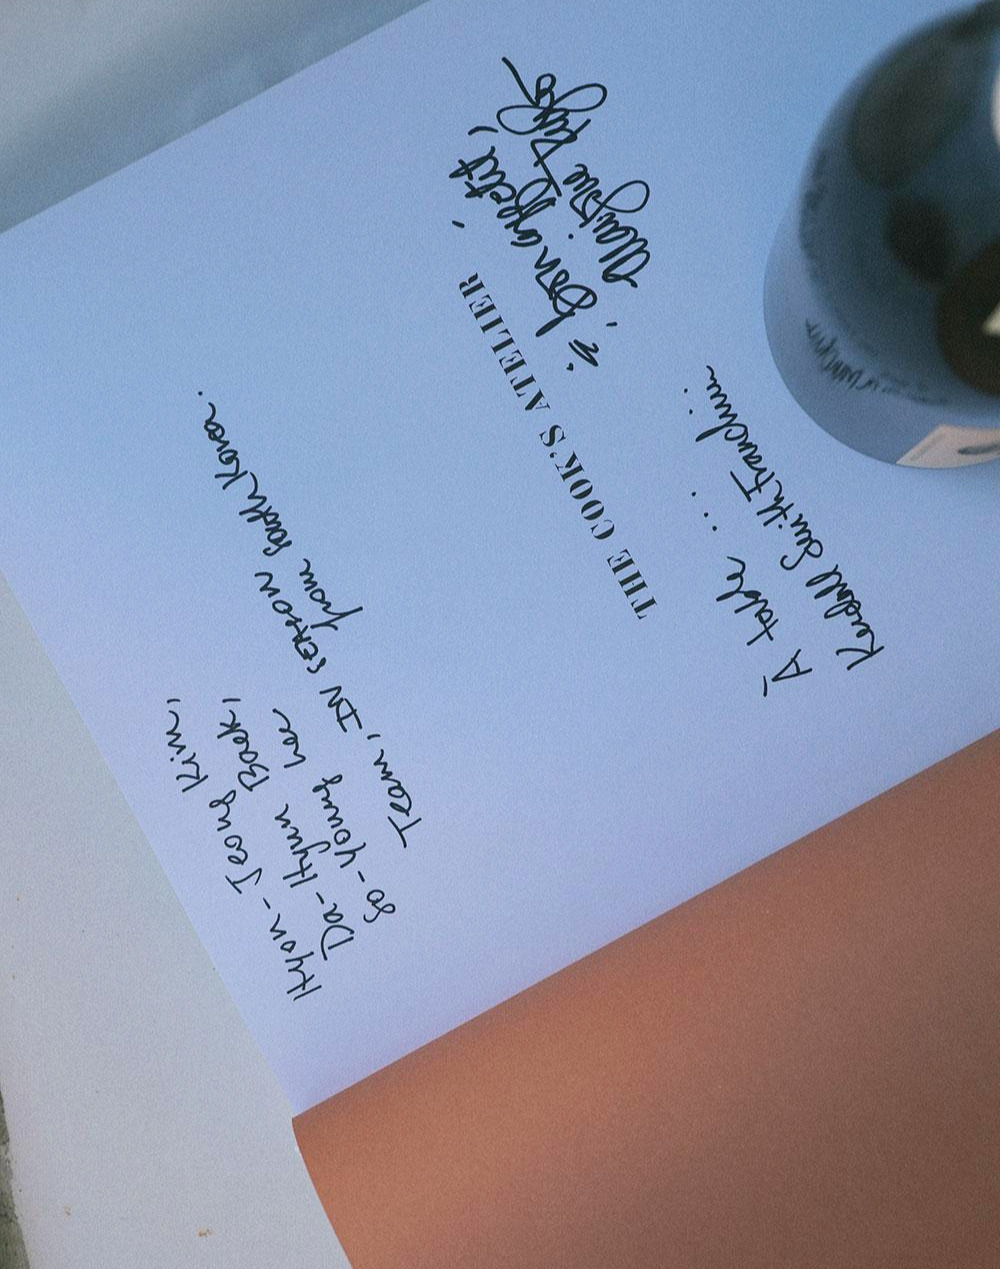 Hyon-Jeong Kim,
Da-Hyun Baek,
So-Young Lee
Team, IN SEASON
from South Korea.
THE COOK'S ATELIER
À table ...
Kendall Smith Franchini
& bon appétit,
Marjorie Taylor